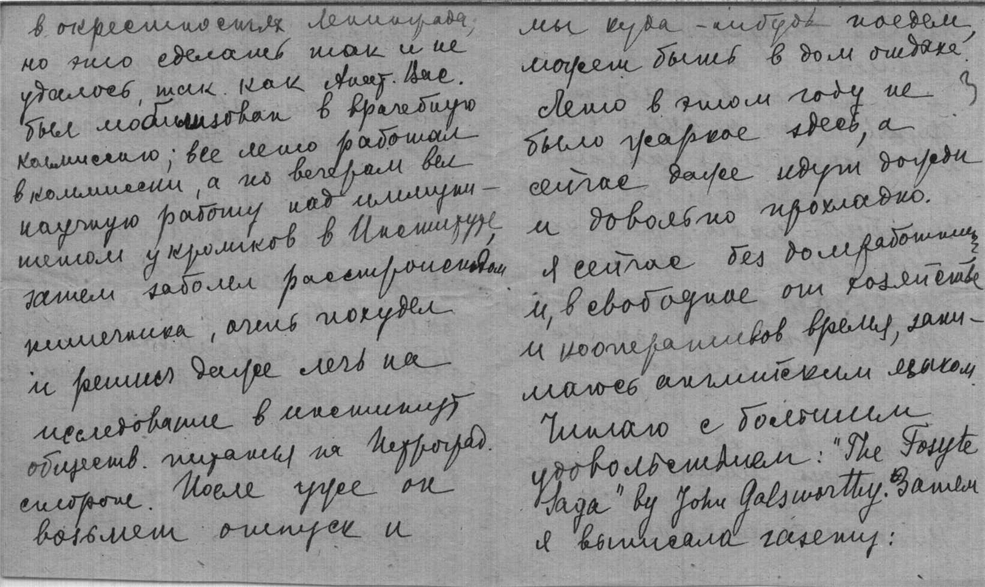 в окрестностях Ленинграда,
но это сделать так и не
удалось, так как Анат. Вас.
был мобилизован в врачебную
коммиссию; все лето работал
в коммиссии, а по вечерам вел
научную работу над иммуни-
тетом у кроликов в Институте,
затем заболел расстройством
кишечника, очень похудел
и решил даже лечь на
исследование в институт
обществ. питанья на Петроград.
стороне. После уже он
возьмет отпуск и
мы куда-нибудь поедем,
может быть в дом отдыха.
Лето в этом году не
было жаркое здесь, а
сейчас даже идут дожди
и довольно прохладно.
Я сейчас без домработницы
и, в свободное от хозяйства
и кооперативов время, зани-
маюсь английским языком.
Читаю с большим
удовольствием: "The Fosyte
Saga" by John Galsworthy. Затем
я выписала газету: